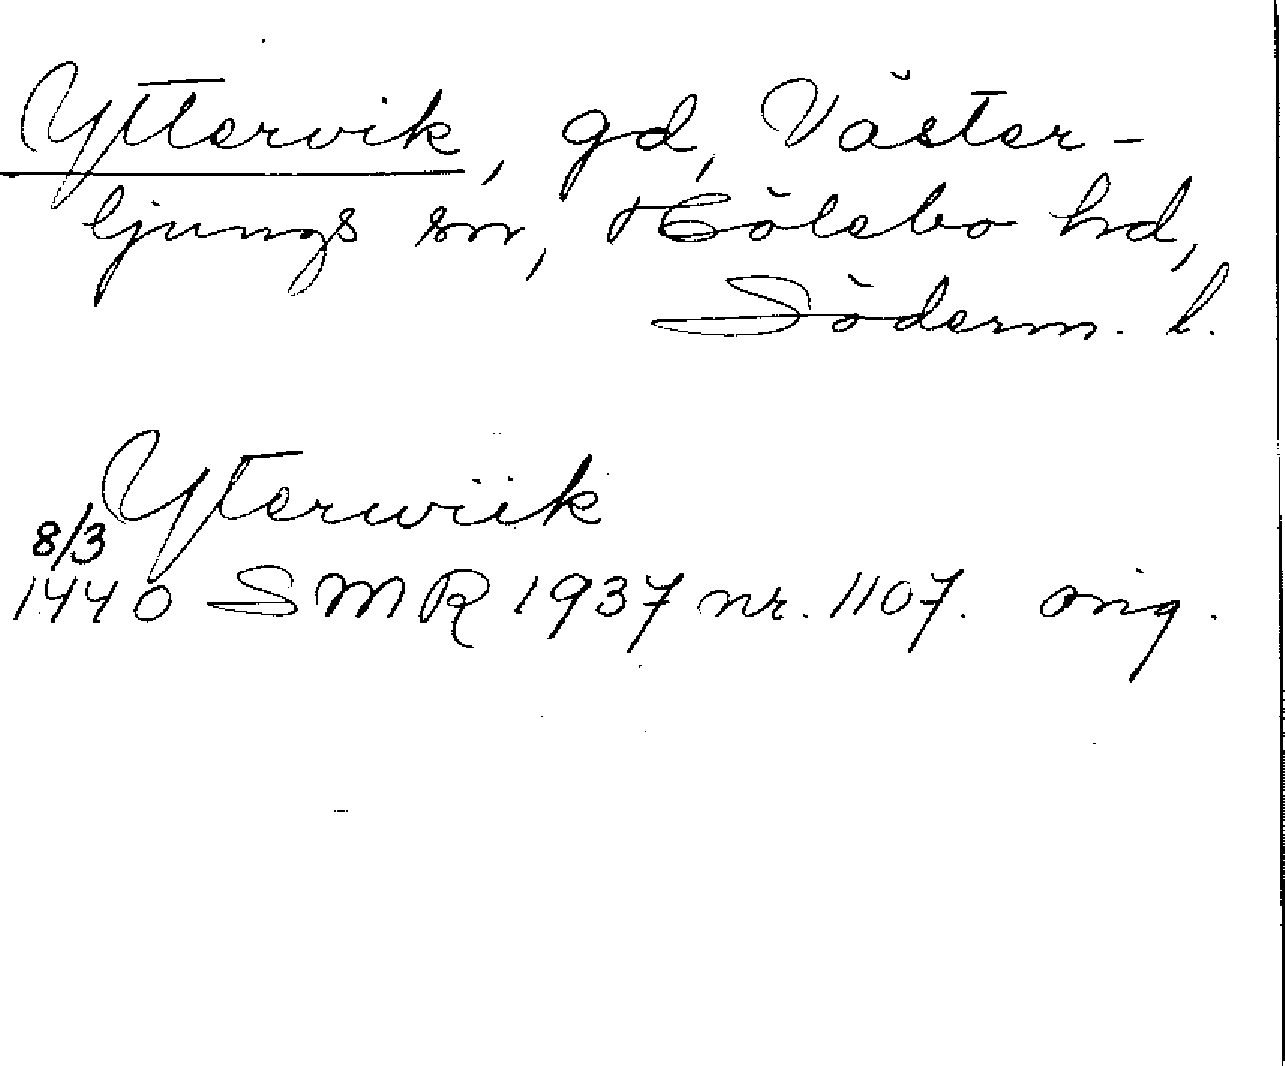 Yttervik, gd, Väster-
ljungs sn, Hölebo hd,
Söderm. l.
Yterwiik
8/3
1440 SMR 1937 nr. 1107. orig.